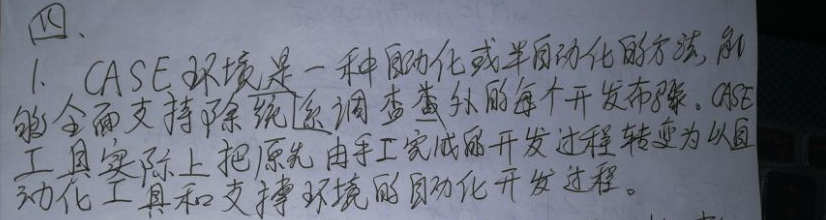 四、
1. CASE环境是一种自动化或半自动化的方法,能
够全面支持除统系调查查外的每个开发布骤。CASE
工具实际上把原先由手工完成的开发过程转变为以自
动化工具和支撑环境的自动化开发过程。